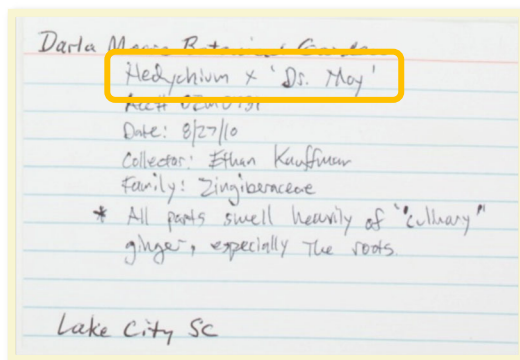 Darla Moore Botanical Garden
Hedychium x 'Dr. Moy'
Acc#
Date: 8/27/10
Collector: Ethan Kauffman
Family: Zingiberaceae
* All parts smell heavily of "culinary"
ginger, especially the roots
Lake City SC